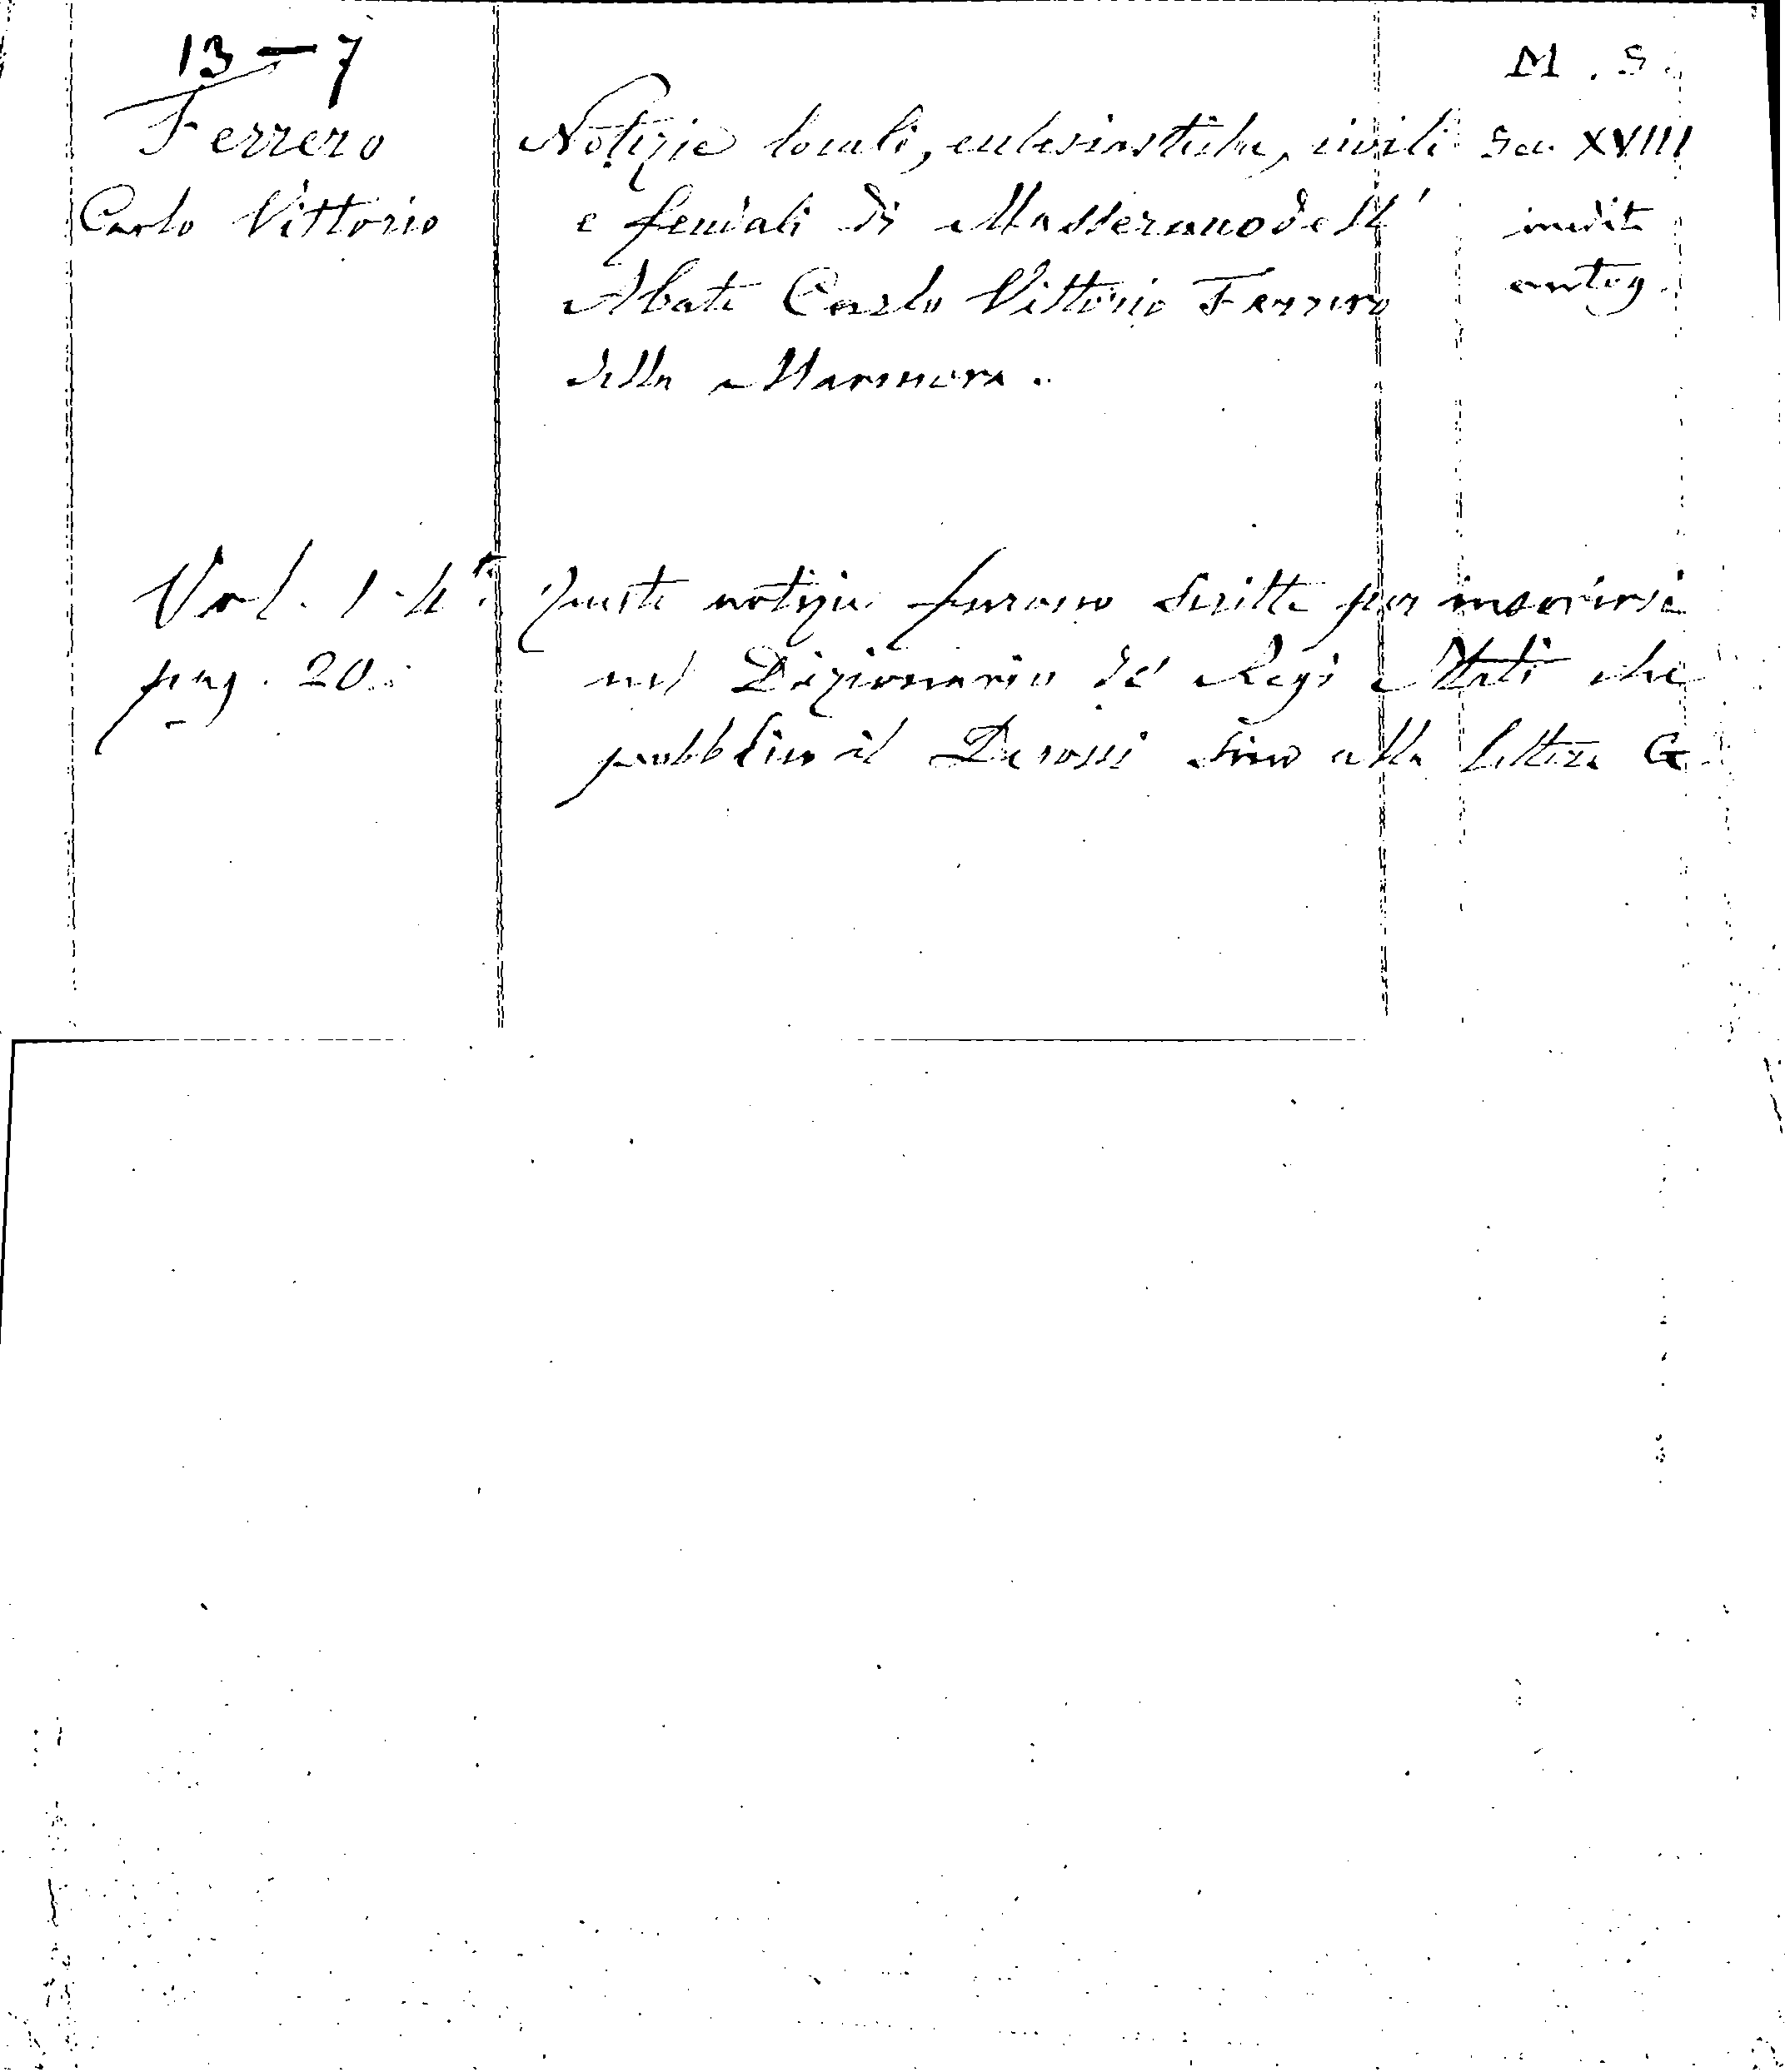 13 - 7
M. S.
Ferrero
Notizie locali, eclesiastiche, civili
Sec. XVIII
Carlo Vittorio
e feudali di Masserano dell'
inedite
Abate Carlo Vittorio Ferrero
autog.
della Marmora.
Vol. 1. 4°.
Queste notizie furono scritte per inserirsi
pag. 20.
nel Dizionario de' Regi Stati che
pubblico il Derossi sino alla lettera G